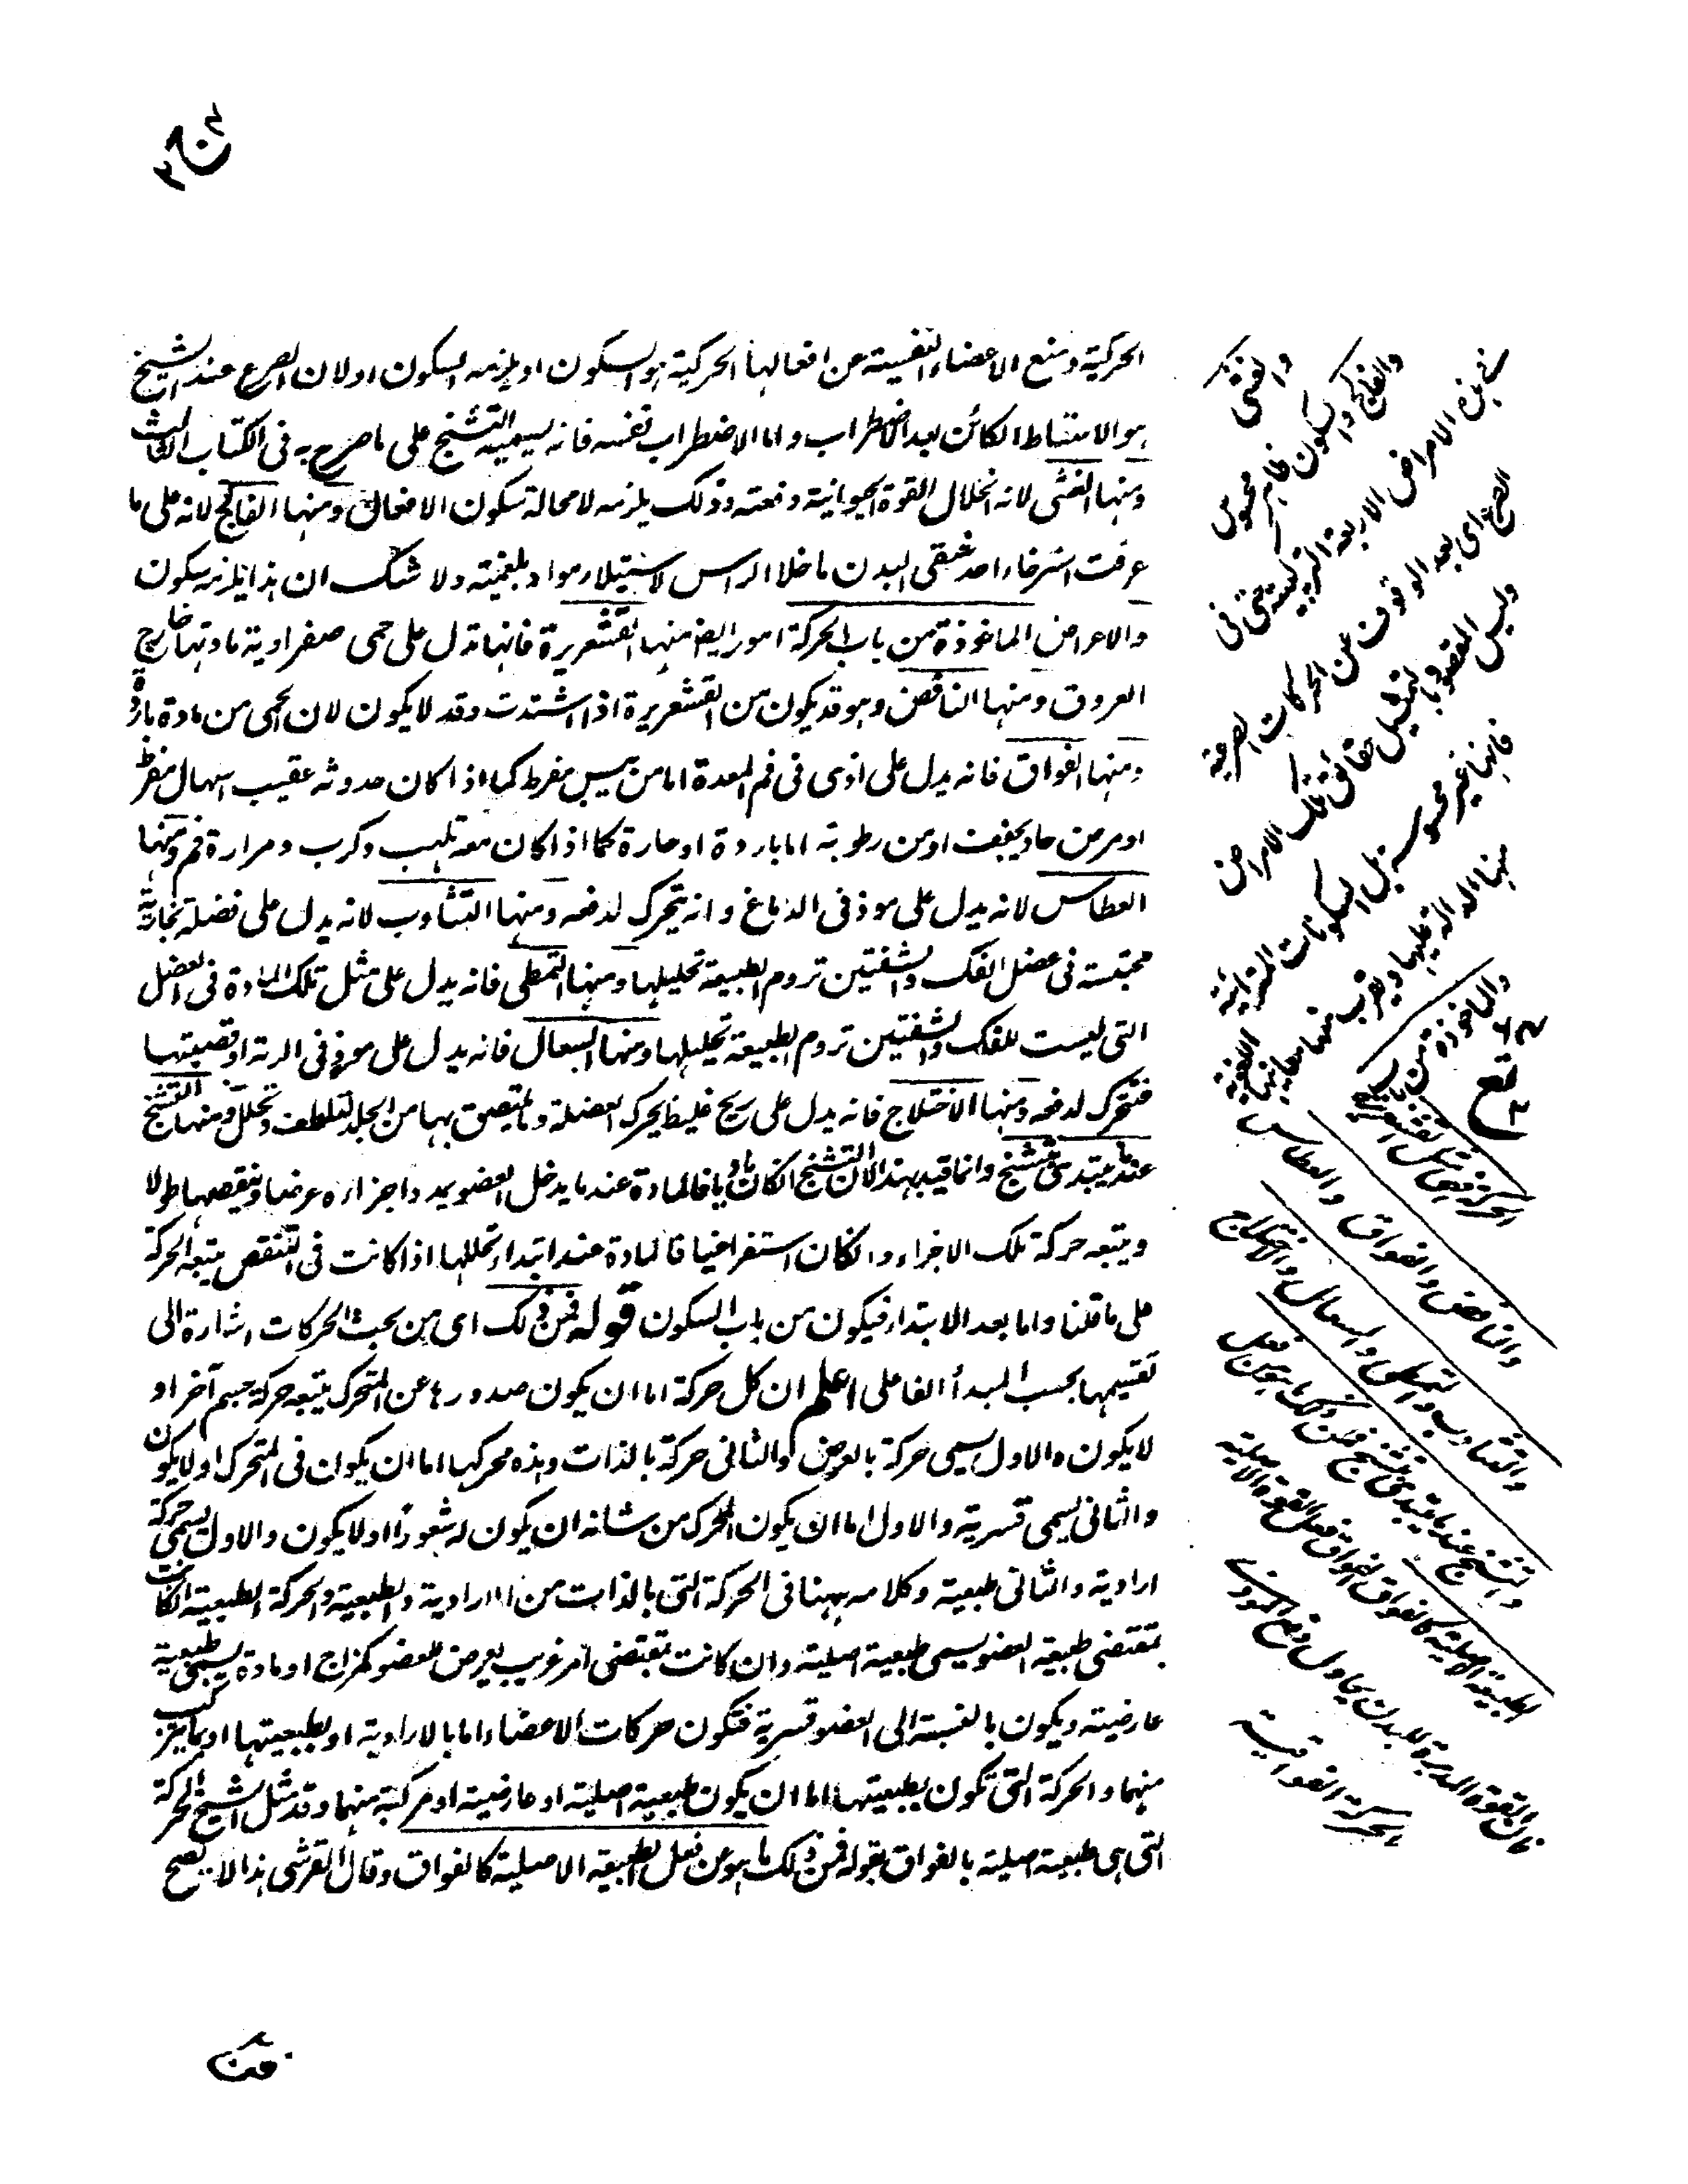 الحركية ومنع الاعضاء النفسية عن افعالها الحركية هو السكون او يلزمه السكون اولان الصرع عند الشيخ
هو الانبساط الكائن بعد الاضطراب واما الاضطراب نفسه فانه يسميه التشنج على ما صرح به فى الكتاب الثالث
ومنها الغشى لانه انحلال القوة الحيوانية دفعة وذلك يلزمه لا محالة سكون الافعال ومنها الفالج لانه على ما
عرفت استرخاء احد شقى البدن ما خلا الراس لاستيلاء مواد بلغمية ولا شك ان هذا يلزمه سكون
والاعراض الماخوذة من باب الحركة امور ايضا منها القشعريرة فانها تدل على حمى صفراوية مادتها خارج
العروق ومنها النافض وهو قد يكون من القشعريرة اذا اشتدت وقد لا يكون لان الحمى من مادة باردة
ومنها الفواق فانه يدل على اذى فى فم المعدة اما من يبس مفرط كما اذا كان حدوثه عقيب اسهال مفرط
او من حار يجفف او من رطوبة اما باردة او حارة كما اذا كان معه تلهب وكرب ومرارة فم ومنها
العطاس لانه يدل على موذ فى الدماغ وانه يتحرك لدفعه ومنها التثاوب لانه يدل على فضلة بخارية
محتبسة فى عضل الفك والشفتين تروم الطبيعة تحليلها ومنها التمطى فانه يدل على مثل تلك المادة فى العضل
التى ليست للفك والشفتين تروم الطبيعة تحليلها ومنها السعال فانه يدل على موذ فى الرية او قصبتها
فتتحرك لدفعه ومنها الاختلاج فانه يدل على ريح غليظ يحرك العضلة وما يلتصق بها من الجلد لتلطف وتحلل ومنها التشنج
عند ما يبتدى يتشنج وانما قيد بهذا لان التشنج ان كان ماديا فالمادة عند ما يدخل العضو يمدد اجزاءه عرضا وينقصها طولا
ويتبعه حركة تلك الاجزاء وان كان استفراغيا فالمادة عند ابتداء تحللها اذا كانت فى التنقص يتبعه الحركة
على ما قلنا واما بعد الابتداء فيكون من باب السكون قوله فمن ذلك اى من بحث الحركات اشارة الى
تقسيمها بحسب المبدأ الفاعلى اعلم ان كل حركة اما ان يكون صدورها عن المتحرك يتبعه حركة جسم آخر او
لا يكون والاول يسمى حركة بالعرض والثانى حركة بالذات وهذه محركها اما ان يكون فى المتحرك او لا يكون
والثانى يسمى قسرية والاول اما ان يكون المحرك من شانه ان يكون له شعور او لا يكون والاول يسمى حركة
ارادية والثانى طبيعية وكلامه ههنا فى الحركة التى بالذات من الارادية والطبيعية والحركة الطبيعية ان كانت
بمقتضى طبيعة العضو يسمى طبيعية اصلية وان كانت بمقتضى امر غريب يعرض للعضو كمزاج او مادة يسمى طبيعية
عارضية ويكون بالنسبة الى العضو قسرية فتكون حركات الاعضاء اما بالارادية او بطبيعتها او بما يتركب
منهما والحركة التى تكون بطبيعتها اما ان يكون طبيعية اصلية او عارضية او مركبة منهما وقد مثل الشيخ الحركة
التى هى طبيعية اصلية بالفواق بقوله فمن ذلك ما هو عن فعل الطبيعة الاصلية كالفواق وقال القرشى هذا لا يصح
والغشى
والفالج والسكون ظاهر محسوس
فى هذه الامراض الاربعة
الصرع اى بعد الوقوف عن الحركات الصرعية
وليس المقصود بالتمثيل حقائق تلك الامراض
فانها غير محسوسة بل السكونات
والماخوذة من باب
الحركة فمثل القشعريرة
والنافض والفواق والعطاس
والتثاوب والتمطى والسعال والاختلاج
والتشنج عند ما يبتدى يتشنج فمن ذلك ما هو من فعل
الطبيعة الاصلية كالفواق
فان القوة المدبرة للبدن يحاول دفع الموذى
الحركة الفواقية